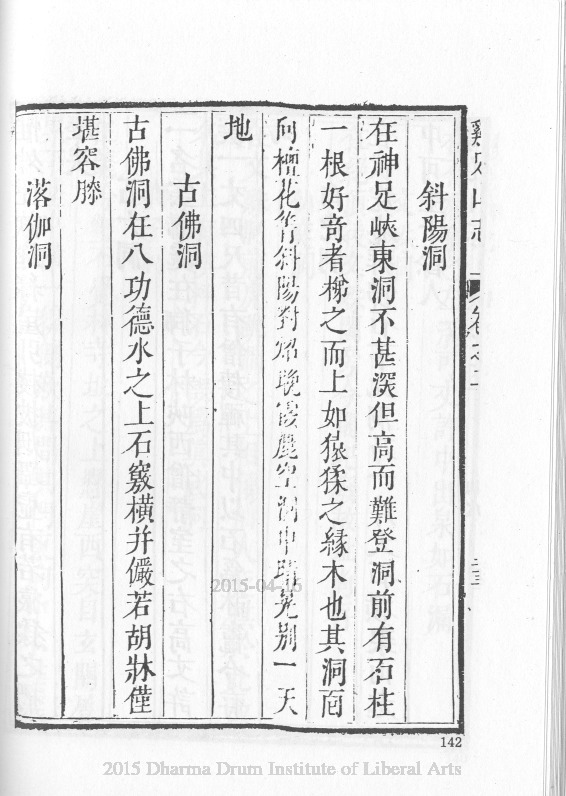 雞足山志
卷之二
斜陽洞
在神足峽東洞不甚深但高而難登洞前有石柱
一根好竒者梯之而上如猿猱之緣木也其洞面
向檀花箐斜陽對炤晚霞麗空洞中晃別一天
地
古佛洞
古佛洞在八功德水之上石竅橫并儼若胡牀僅
堪容膝
落伽洞
2015-04-16
142
2015 Dharma Drum Institute of Liberal Arts